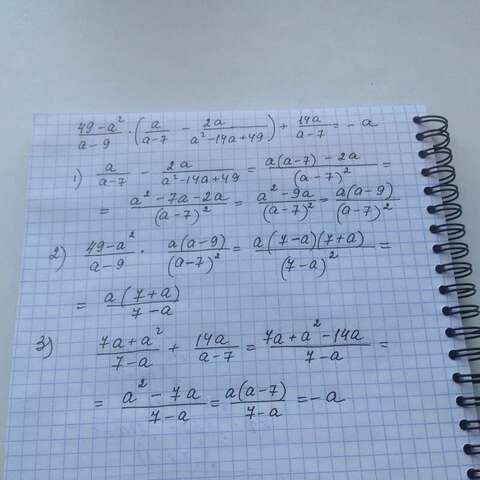 (49-a²)/(a-9) · (a/(a-7) - 2a/(a²-14a+49)) + 14a/(a-7) = -a
1) a/(a-7) - 2a/(a²-14a+49) = (a(a-7)-2a)/(a-7)² =
= (a²-7a-2a)/(a-7)² = (a²-9a)/(a-7)² = a(a-9)/(a-7)²
2) (49-a²)/(a-9) · a(a-9)/(a-7)² = a(7-a)(7+a)/(7-a)² =
= a(7+a)/(7-a)
3) (7a+a²)/(7-a) + 14a/(a-7) = (7a+a²-14a)/(7-a) =
= (a²-7a)/(7-a) = a(a-7)/(7-a) = -a